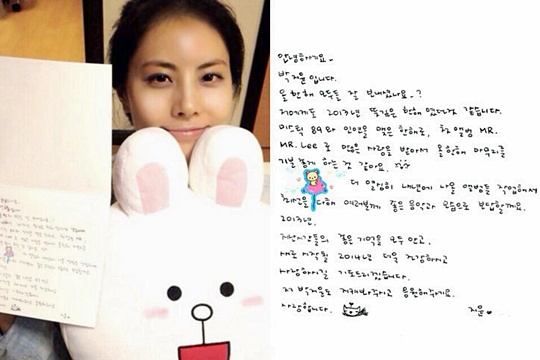 안녕하세요~
박지윤입니다.
올 한해 모두들 잘 보내셨나요~?
저에게도 2013년 뜻깊은 한해였던것 같습니다.
미스틱 89와 인연을 맺은 한해로, 첫 앨범 MR.
MR. Lee 로 많은 사랑을 받아서 올 한해 마무리를
기분 좋게 하는 것 같아요.
더 열심히 내년에 나올 앨범들 작업해서
최선을 다해 여러분께 좋은 음악과 모습으로 보답할께요.
2013년.
지난시간들의 좋은 기억을 모두 안고,
새로 시작될 2014년 더욱 건강하시고
사랑하시길 기도드리겠습니다.
저 박지윤도 지켜봐주시고 응원해주세요.
사랑합니다.
지윤